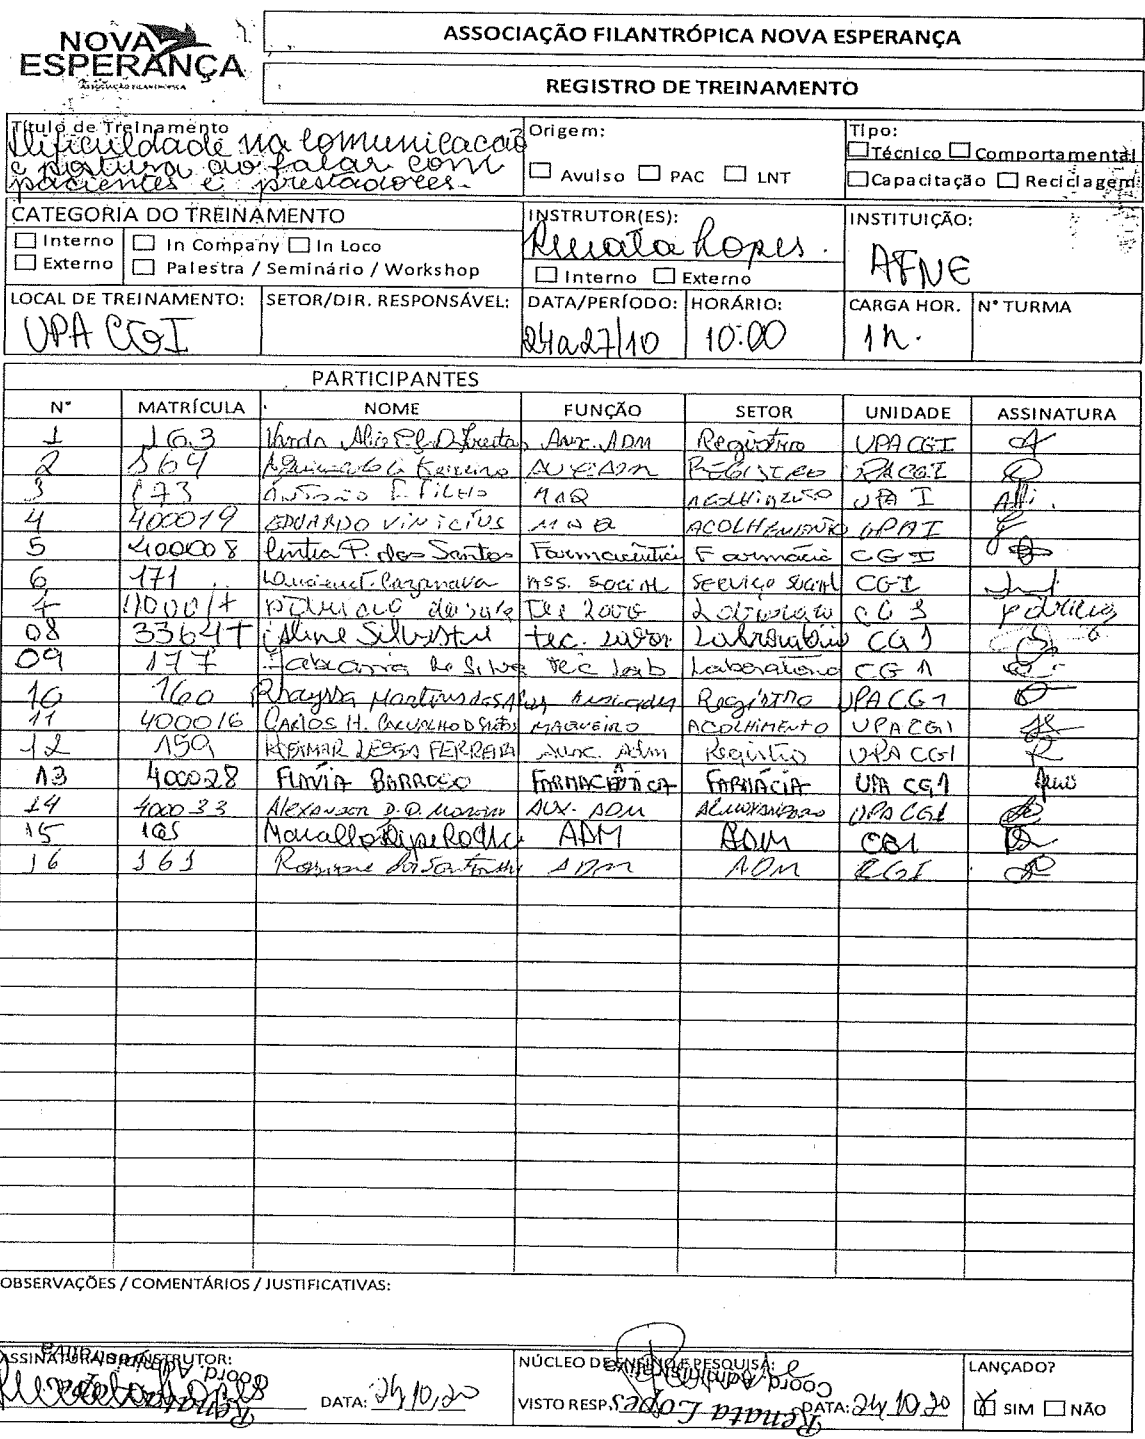 NOVA
ESPERANÇA
ASSOCIAÇÃO FILANTRÓPICA
ASSOCIAÇÃO FILANTRÓPICA NOVA ESPERANÇA
REGISTRO DE TREINAMENTO
Título de Treinamento
Dificuldade na comunicação
e postura ao falar com
pacientes e prestadores.
Origem:
Avulso PAC LNT
Tipo:
Técnico Comportamental
Capacitação Reciclagem
CATEGORIA DO TREINAMENTO
Interno In Company In Loco
Externo Palestra / Seminário / Workshop
INSTRUTOR(ES):
Renata Lopes.
Interno Externo
INSTITUIÇÃO:
AFNE
LOCAL DE TREINAMENTO: SETOR/DIR. RESPONSÁVEL: DATA/PERÍODO: HORÁRIO: CARGA HOR. N° TURMA
UPA CGI 24a27/10 10:00 1h.
PARTICIPANTES
N° MATRÍCULA NOME FUNÇÃO SETOR UNIDADE ASSINATURA
1 163 Aux. ADM Registro UPA CGI
2 564 AUX ADM REGISTRO
3 173 ANTONIO F. FILHO MAQ ACOLHIMENTO UPA I
4 400019 EDUARDO VINICIUS MAQ ACOLHIMENTO UPA I
5 400008 Cintia P. dos Santos Farmacêutica Farmácia CGI
6 171 Ass. Social Serviço Social CGI
7 Patricia
08 Aline Silvestre tec. Laboratório CG1
09 177 Fabiana da Silva tec lab Laboratório CG1
10 160 Rhayssa Martins Registro UPA CG1
11 400016 CARLOS H. CARVALHO D SANTOS MAQUEIRO ACOLHIMENTO UPA CG1
12 159 LESSA FERREIRA Aux. Adm Registro UPA CG1
13 400028 FLAVIA BARROSO FARMACÊUTICA FARMÁCIA UPA CG1
14 400033 AUX. ADM ALMOXARIFADO UPA CG1
15 165 ADM ADM CG1
16 161 ADM ADM CGI
OBSERVAÇÕES / COMENTÁRIOS / JUSTIFICATIVAS:
ASSINATURA DO INSTRUTOR:
Renata Lopes
Coord. Administrativa
DATA: 24/10/20
NÚCLEO DE ENSINO E PESQUISA:
Coord. Administrativa
VISTO RESP. Renata Lopes DATA: 24/10/20
LANÇADO?
X SIM NÃO